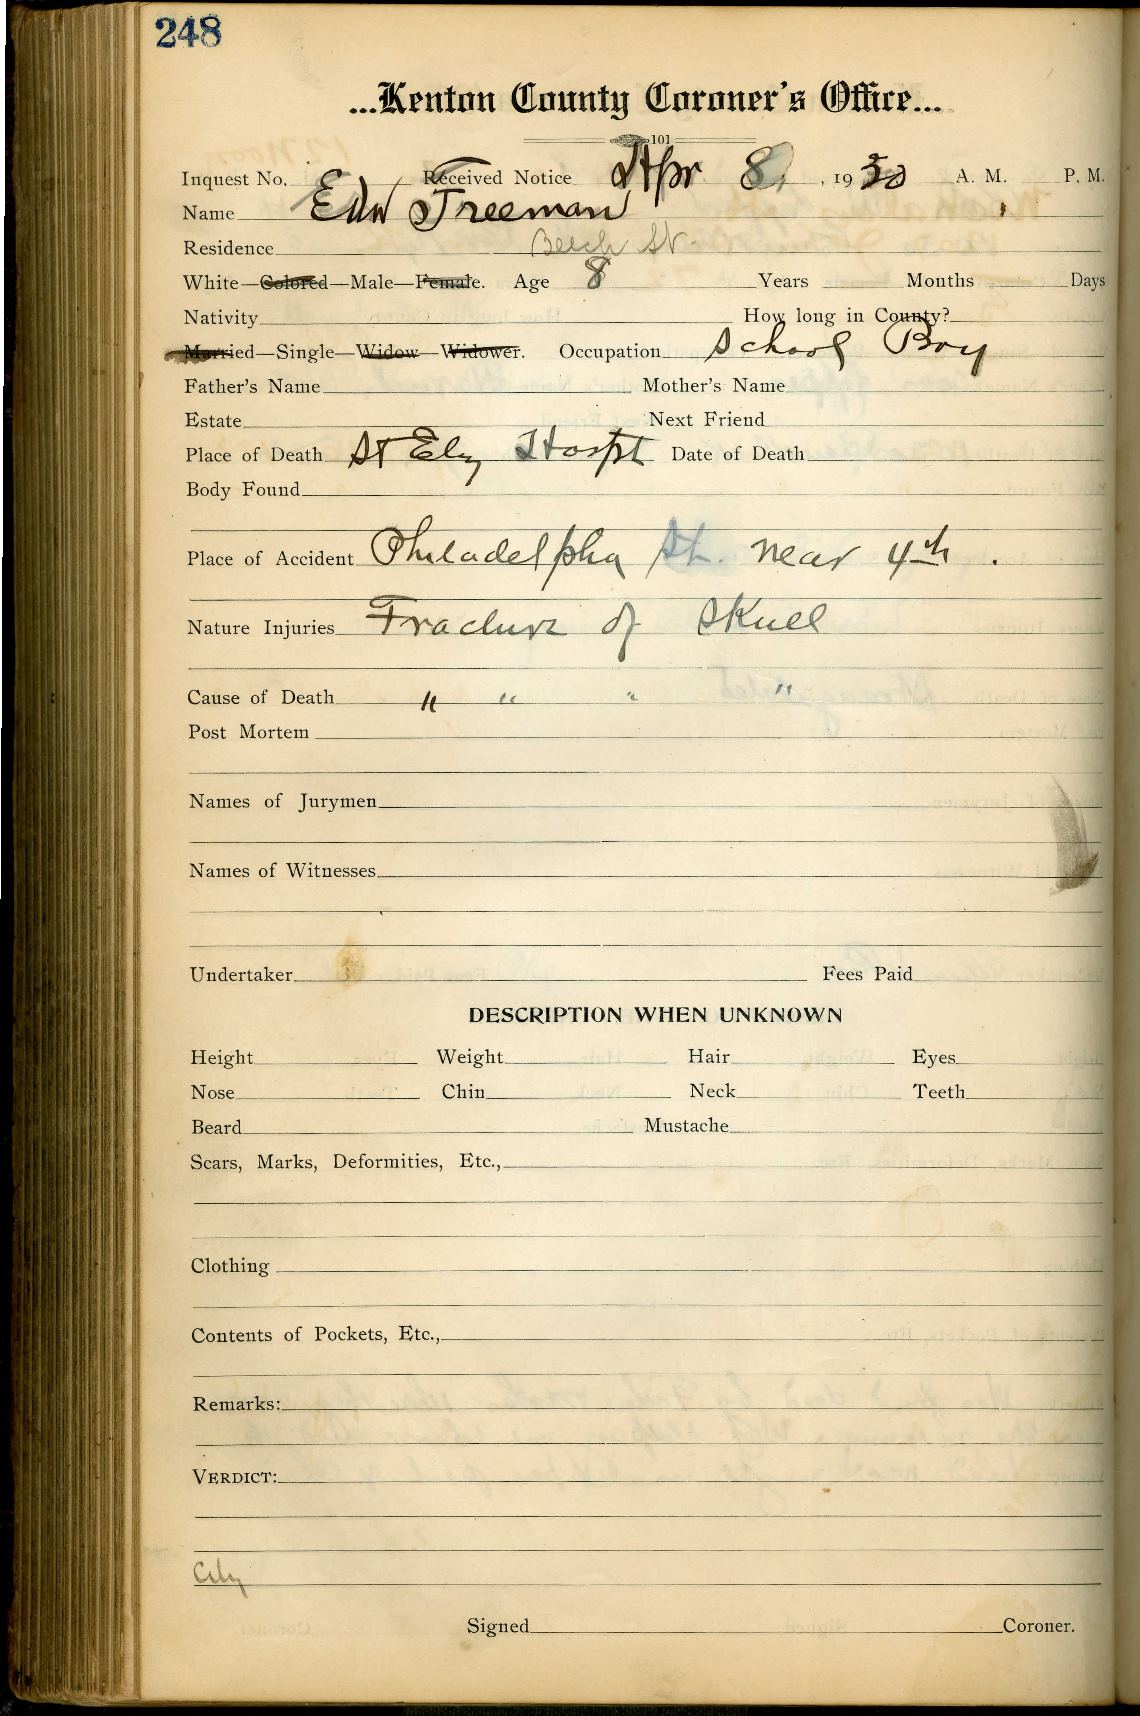 248
...Kenton County Coroner's Office...
101
Inquest No. Received Notice Apr 8, , 1930 A. M. P. M.
Name Edw Freeman
Residence Beech St.
White—Colored—Male—Female. Age 8 Years Months Days
Nativity How long in County?
Married—Single—Widow—Widower. Occupation School Boy
Father's Name Mother's Name
Estate Next Friend
Place of Death St Eliz Hospt Date of Death
Body Found
Place of Accident Philadelpha St. near 4th .
Nature Injuries Fracture of Skull
Cause of Death " " " "
Post Mortem
Names of Jurymen
Names of Witnesses
Undertaker Fees Paid
DESCRIPTION WHEN UNKNOWN
Height Weight Hair Eyes
Nose Chin Neck Teeth
Beard Mustache
Scars, Marks, Deformities, Etc.,
Clothing
Contents of Pockets, Etc.,
Remarks:
VERDICT:
City
Signed Coroner.